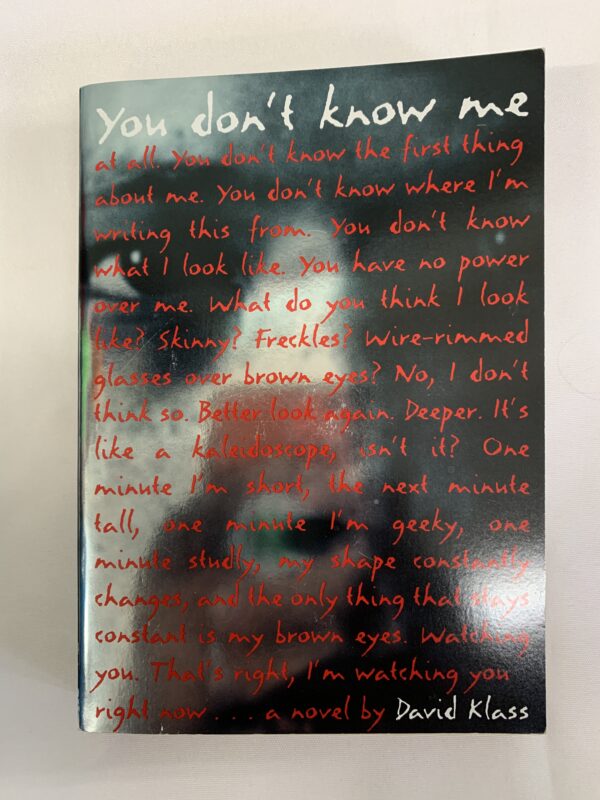 You don't know me
at all. You don't know the first thing
about me. You don't know where I'm
writing this from. You don't know
what I look like. You have no power
over me. What do you think I look
like? Skinny? Freckles? Wire-rimmed
glasses over brown eyes? No, I don't
think so. Better look again. Deeper. It's
like a kaleidoscope, isn't it? One
minute I'm short, the next minute
tall, one minute I'm geeky, one
minute studly, my shape constantly
changes, and the only thing that stays
constant is my brown eyes. Watching
you. That's right, I'm watching you
right now . . . a novel by David Klass